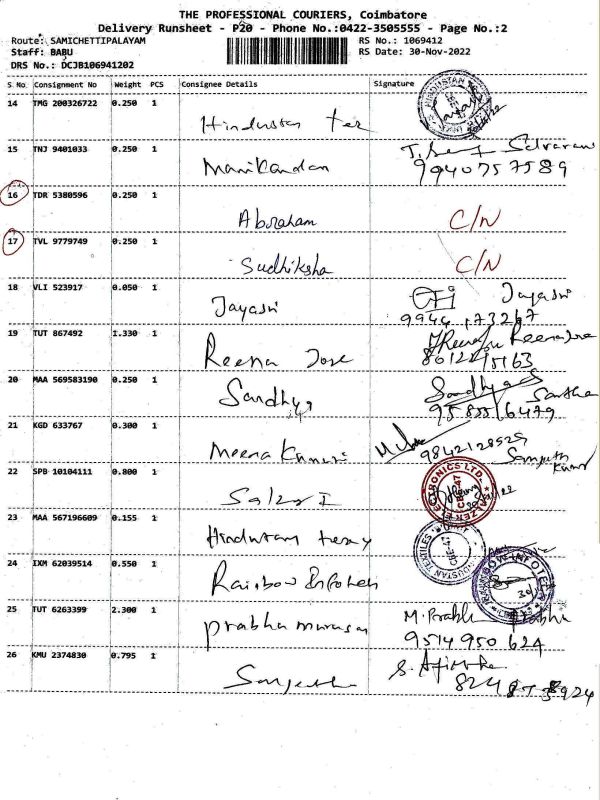 THE PROFESSIONAL COURIERS, Coimbatore
Delivery Runsheet - P20 - Phone No.:0422-3505555 - Page No.:2
Route: SAMICHETTIPALAYAM RS No.: 1069412
Staff: BABU RS Date: 30-Nov-2022
DRS No.: DCJB106941202
S No. Consignment No Weight PCS Consignee Details Signature
14 TMG 200326722 0.250 1
Hindustan Tex
15 TNJ 9401033 0.250 1
Manikandan 9940757589
16 TDR 5380596 0.250 1
Abraham C/N
17 TVL 9779749 0.250 1
Sudhiksha C/N
18 VLI 523917 0.050 1 Jayasri
Jayasri 9944173267
19 TUT 867492 1.330 1
Reena Jose
20 MAA 569583190 0.250 1 Sandhya
Sandhya
21 KGD 633767 0.300 1
Meena Kumari 9842128529
22 SPB 10104111 0.800 1
ELECTRONICS LTD.
CBE-47
23 MAA 567196609 0.155 1
Hindustan
HINDUSTAN TEXTILES
CBE-47
24 IXM 62039514 0.550 1
Rainbow Infotech
RAINBOW INFOTECH
25 TUT 6263399 2.300 1 M. Prabhu
Prabha murugan 9514 950 624
26 KMU 2374830 0.795 1